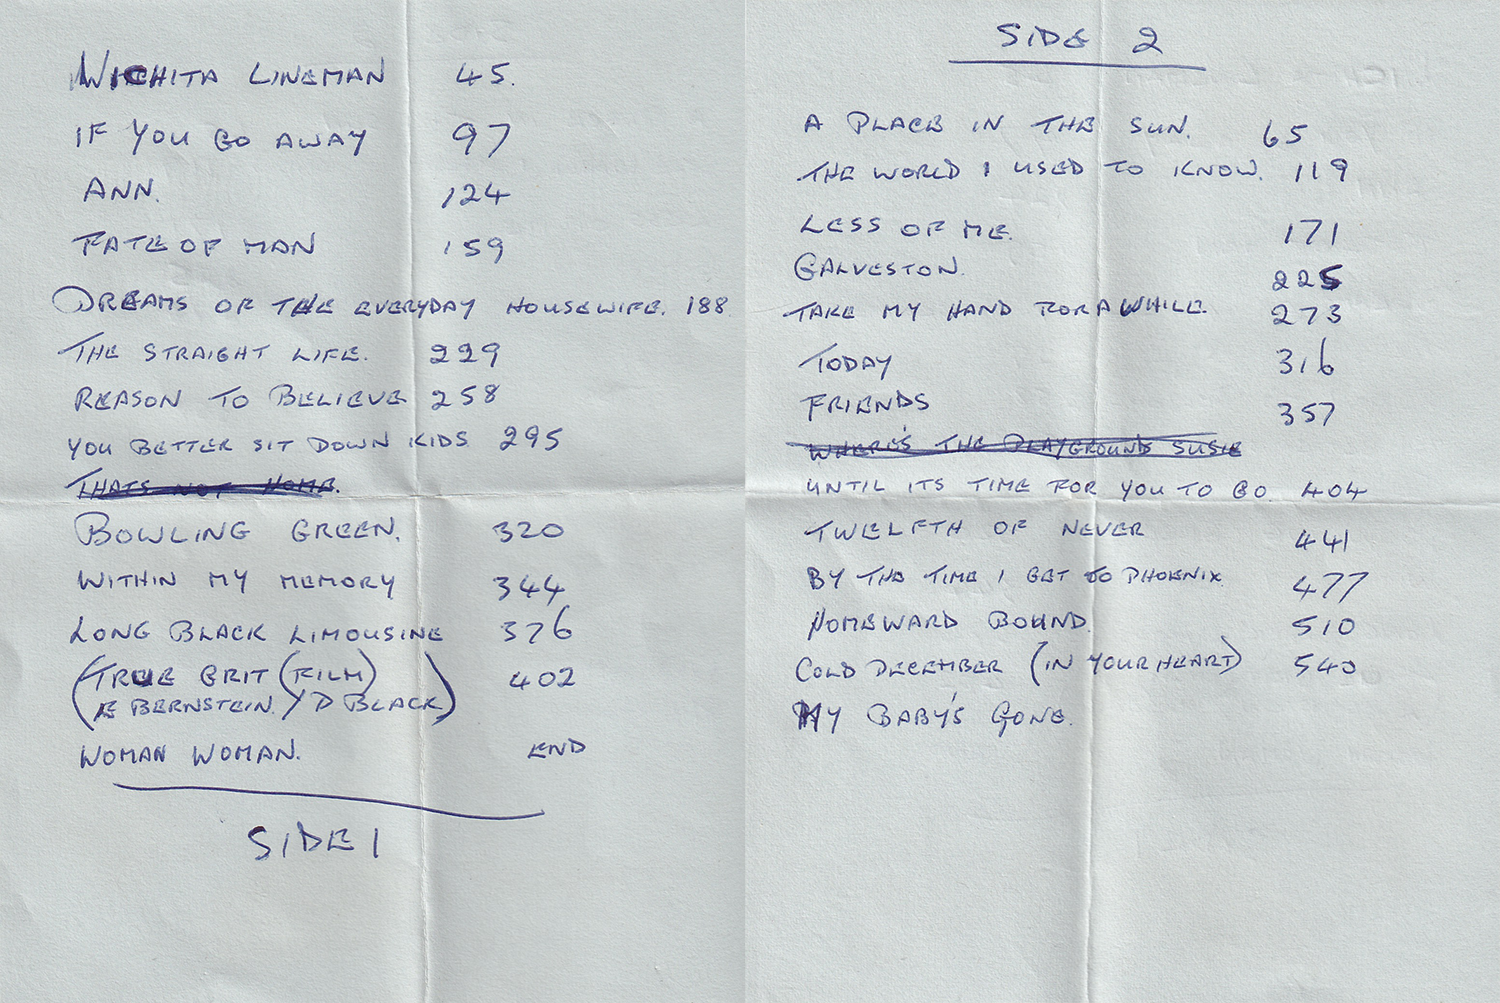 WICHITA LINEMAN 45.
IF YOU GO AWAY 97
ANN. 124
FATE OF MAN 159
DREAMS OF THE EVERYDAY HOUSEWIFE. 188
THE STRAIGHT LIFE. 229
REASON TO BELIEVE 258
YOU BETTER SIT DOWN KIDS 295
THATS NOT HOME.
BOWLING GREEN. 320
WITHIN MY MEMORY 344
LONG BLACK LIMOUSINE 376
(TRUE GRIT (FILM) 402
E BERNSTEIN. / D BLACK)
WOMAN WOMAN. END
SIDE 1
SIDE 2
A PLACE IN THE SUN. 65
THE WORLD I USED TO KNOW. 119
LESS OF ME. 171
GALVESTON. 225
TAKE MY HAND FOR A WHILE. 273
TODAY 316
FRIENDS 357
WHERE'S THE PLAYGROUND SUSIE
UNTIL ITS TIME FOR YOU TO GO 404
TWELFTH OF NEVER 441
BY THE TIME I GET TO PHOENIX 477
HOMEWARD BOUND. 510
COLD DECEMBER (IN YOUR HEART) 540
MY BABY'S GONE.